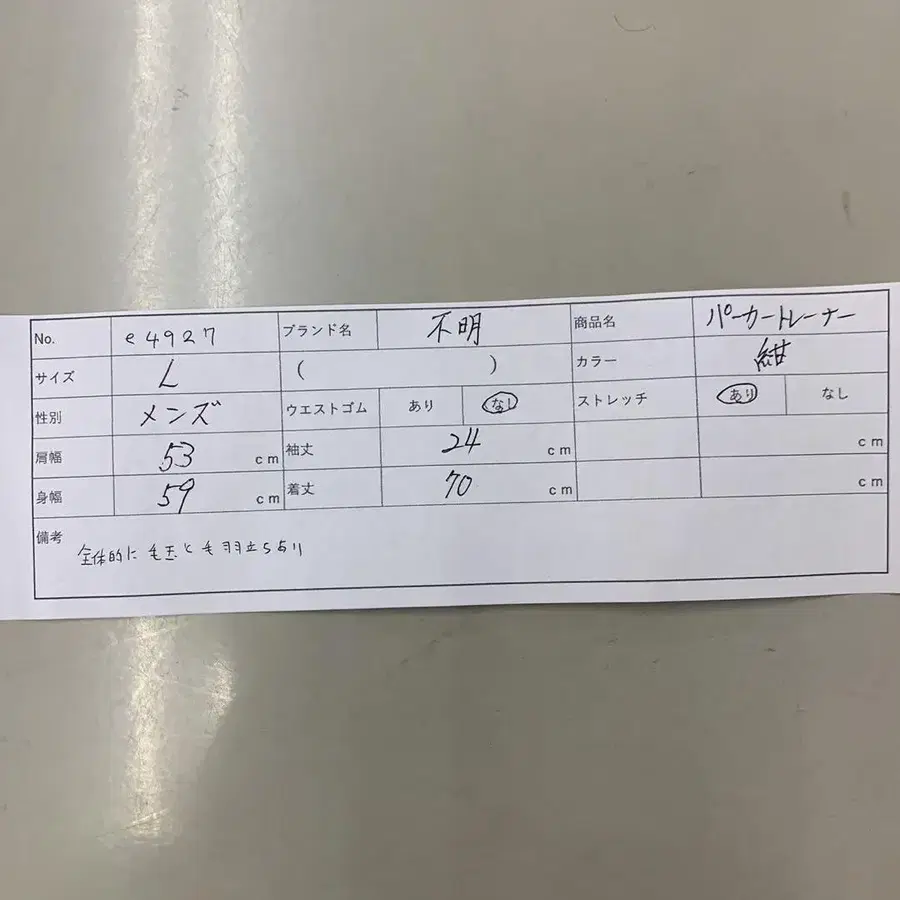 No. e4927 ブランド名 不明 商品名 パーカートレーナー
サイズ L ( ) カラー 紺
性別 メンズ ウエストゴム あり なし ストレッチ あり なし
肩幅 53 cm 袖丈 24 cm cm
身幅 59 cm 着丈 70 cm cm
備考
全体的に毛玉と毛羽立ちあり